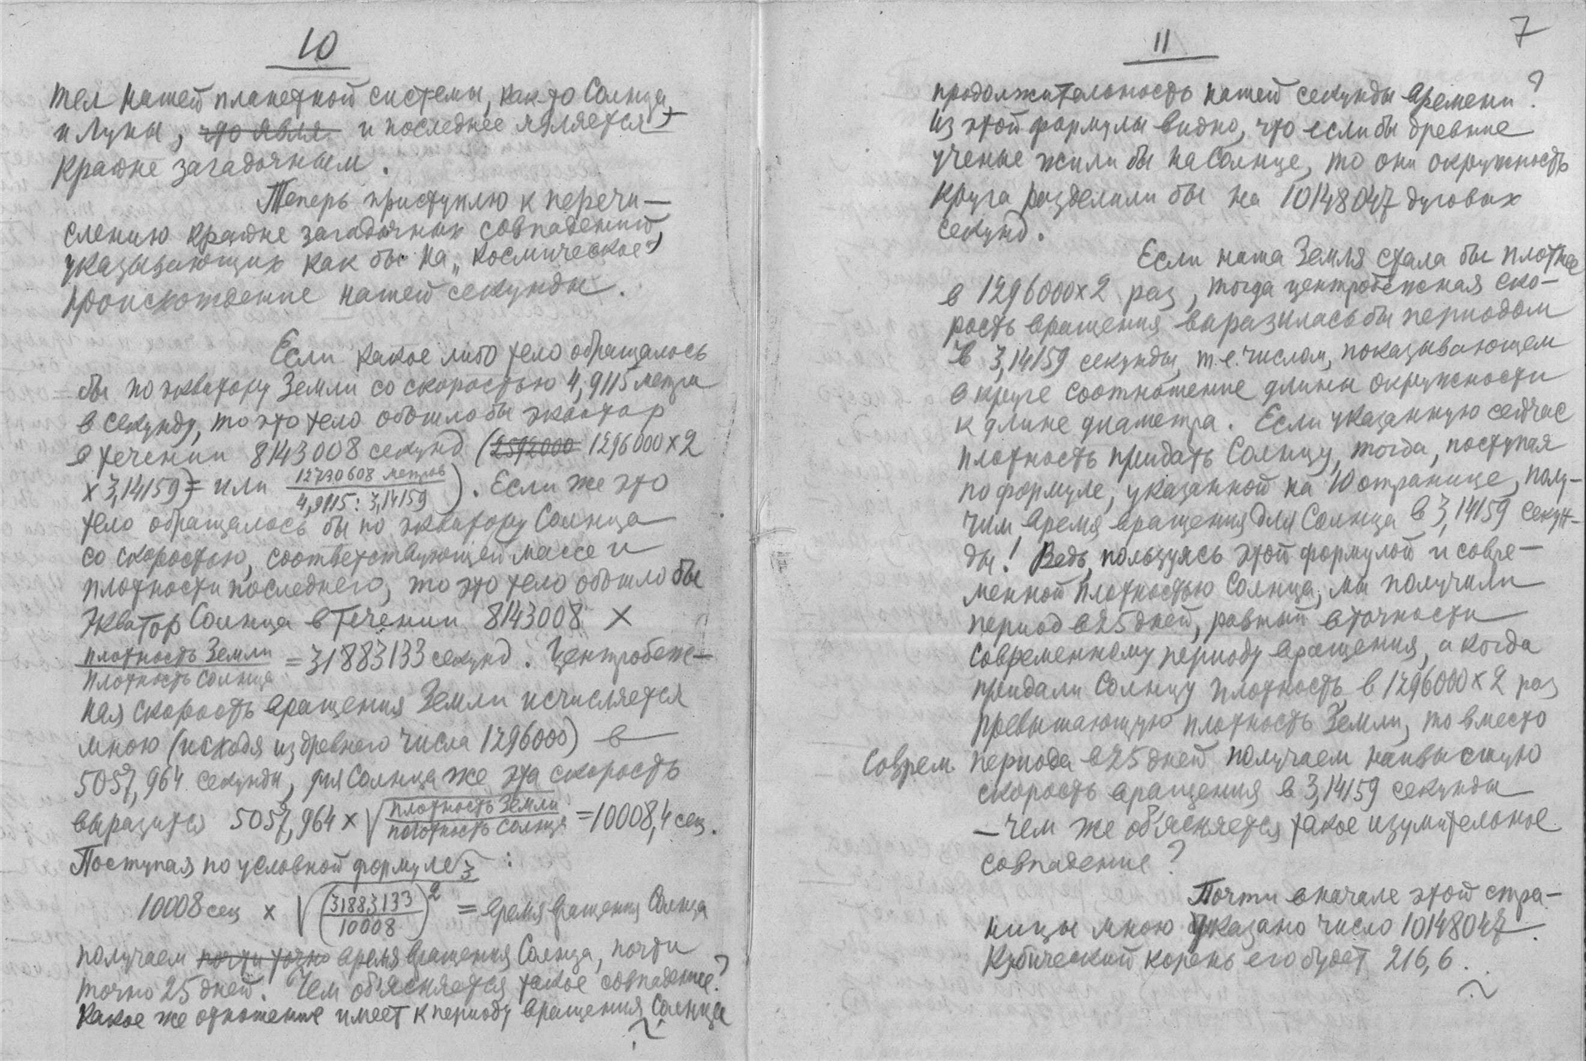 10
тел нашей планетной системы, как-то Солнца
и Луны, что явля. и последнее является
крайне загадочным.
Теперь приступлю к перечи—
слению крайне загадочных совпадений,
указывающих как бы на „космическое"
происхождение нашей секунды.
Если какое либо тело обращалось
бы по экватору Земли со скоростью 4,9115 метра
в секунду, то это тело обошло бы экватор
в течении 8143008 секунд (2592000 1296000×2
×3,14159= или 12730608 метров / 4,9115:3,14159). Если же это
тело обращалось бы по экватору Солнца
со скоростью, соответствующей массе и
плотности последнего, то это тело обошло бы
экватор Солнца в течении 8143008 ×
плотность Земли / плотность Солнца = 31883133 секунд. Центробеж—
ная скорость вращения Земли исчисляется
мною (исходя из древнего числа 1296000) в
5057,964 секунды, для Солнца же эта скорость
выразится 5057,964 × √ плотность Земли / плотность Солнца = 10008,4 сек.
Поступая по условной формуле :
10008 сек × 3√ (31883133 / 10008)² = время вращения Солнца
получаем почти точно время вращения Солнца, почти
точно 25 дней. Чем объясняется такое совпадение?
Какое же отношение имеет к периоду вращения Солнца
11
7
продолжительность нашей секунды времени?
Из этой формулы видно, что если бы древние
ученые жили бы на Солнце, то они окружность
круга разделили бы на 10148047 дуговых
секунд.
Если наша Земля стала бы плотнее
в 1296000×2 раз, тогда центробежная ско—
рость вращения выразилась бы периодом
в 3,14159 секунды, т.е. числом, показывающем
в круге соотношение длины окружности
к длине диаметра. Если указанную сейчас
плотность придать Солнцу, тогда, поступая
по формуле, указанной на 10 странице, полу—
чим время вращения для Солнца в 3,14159 секун—
ды! Ведь, пользуясь этой формулой и совре—
менной плотностью Солнца, мы получили
период в 25 дней, равный в точности
современному периоду вращения, а когда
придали Солнцу плотность в 1296000×2 раз
превышающую плотность Земли, то вместо
соврем. периода в 25 дней получаем наивысшую
скорость вращения в 3,14159 секунды
— чем же объясняется такое изумительное
совпадение?
Почти вначале этой стра—
ницы мною указано число 10148047.
Кубический корень его будет 216,6.